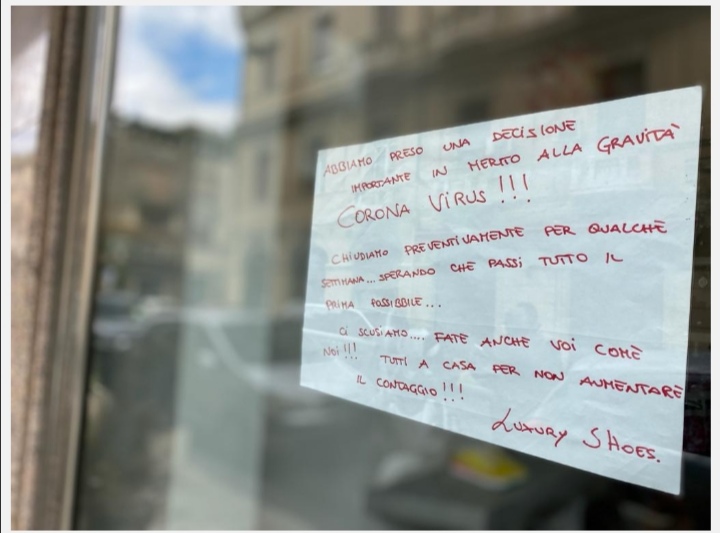 ABBIAMO PRESO UNA DECISIONE
IMPORTANTE IN MERITO ALLA GRAVITÀ
CORONA VIRUS !!!
CHIUDIAMO PREVENTIVAMENTE PER QUALCHE
SETTIMANA... SPERANDO CHE PASSI TUTTO IL
PRIMA POSSIBBILE...
CI SCUSIAMO.... FATE ANCHE VOI COME
NOI !!! TUTTI A CASA PER NON AUMENTARE
IL CONTAGGIO !!!
LUXURY SHOES.